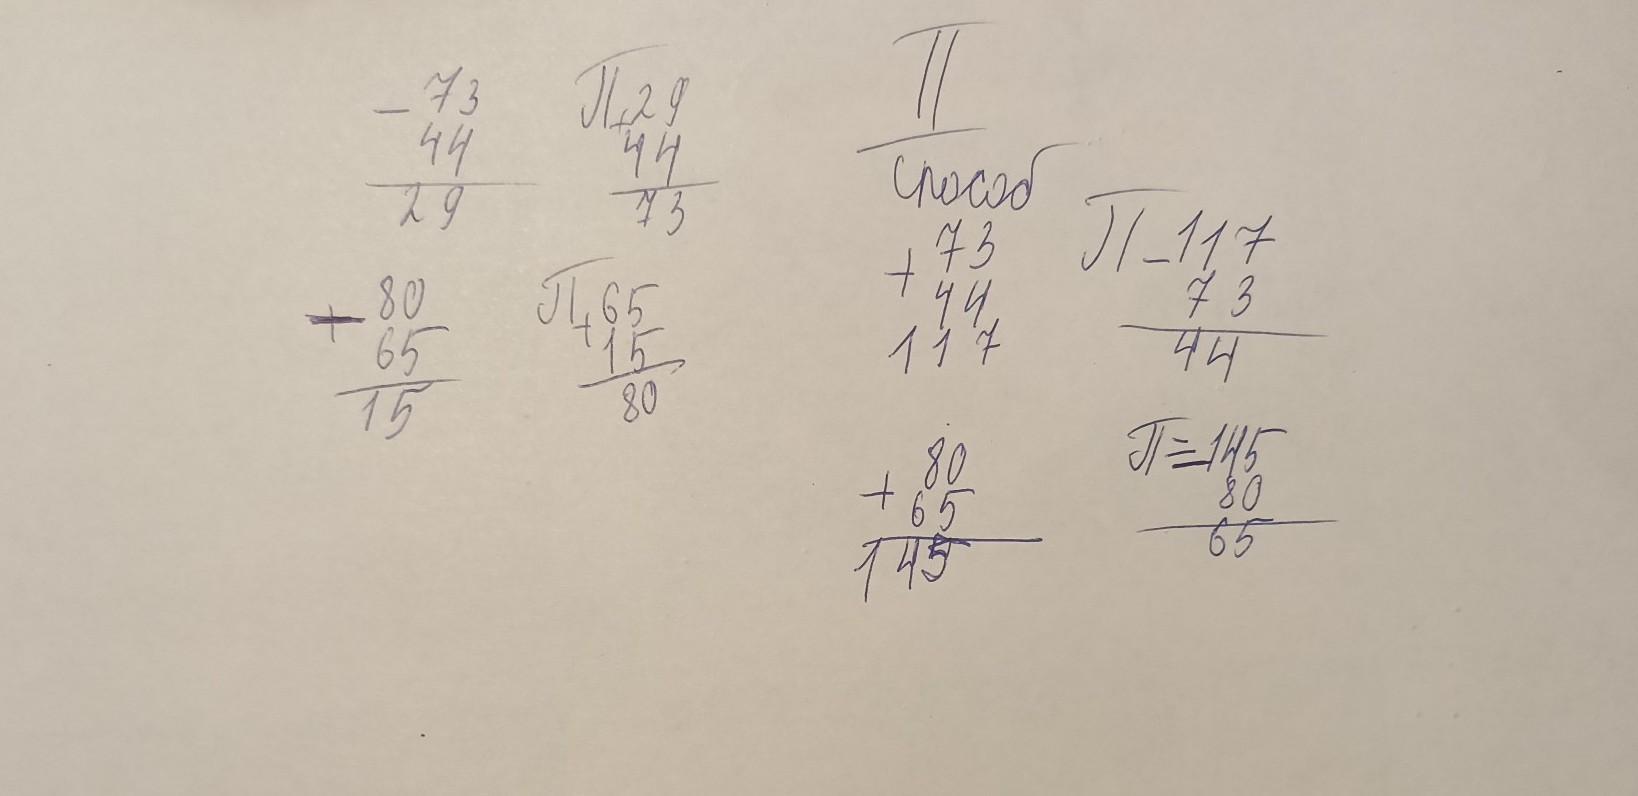 - 73
44
29
П + 29
44
73
+ 80
65
15
П + 65
15
80
II
способ
+ 73
44
117
П - 117
73
44
+ 80
65
145
П = 145
80
65